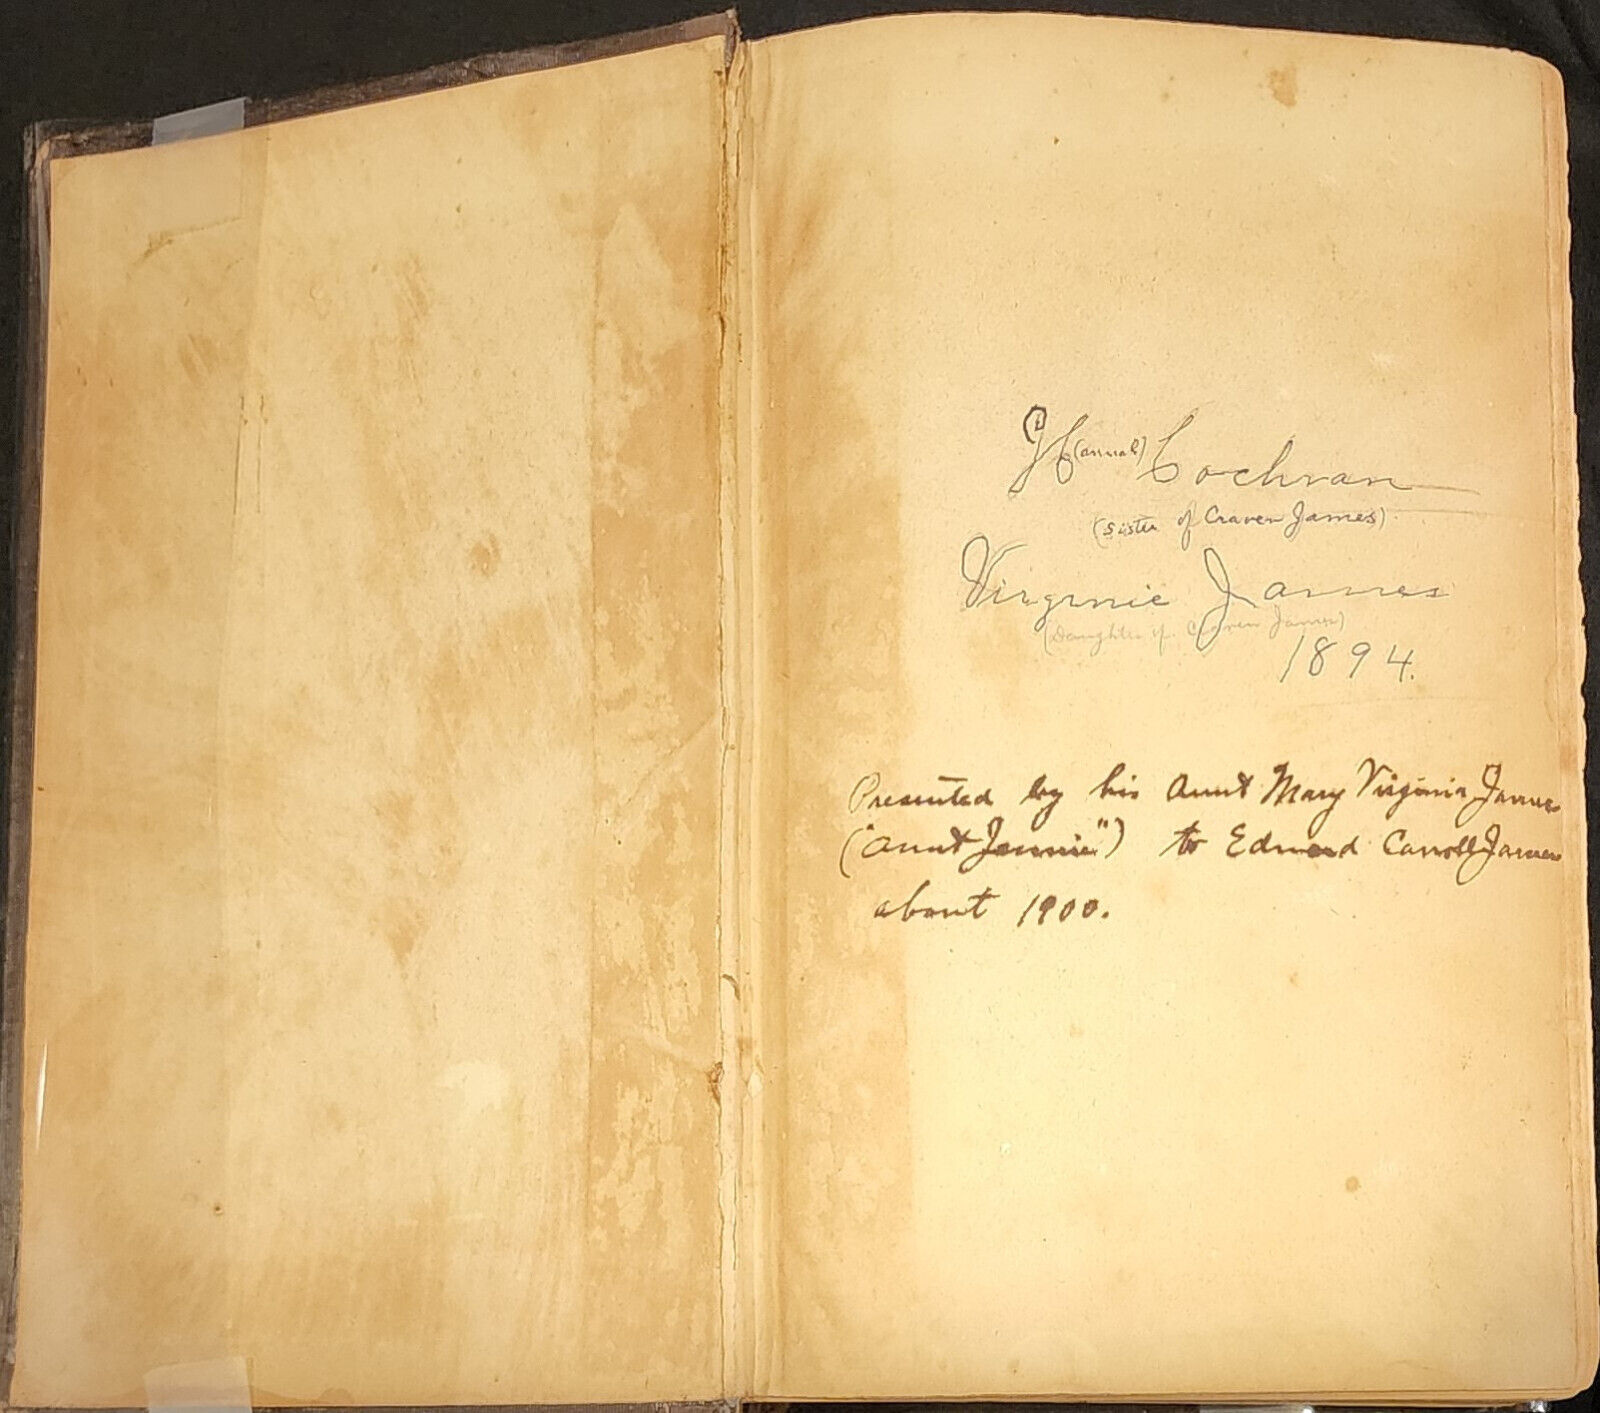 H(annah) Cochran
(Sister of Craven James)
Virginie James
(Daughter of Craven James)
1894.
Presented by his Aunt Mary Virginia James
("Aunt Jennie") to Edward Carroll James
about 1900.